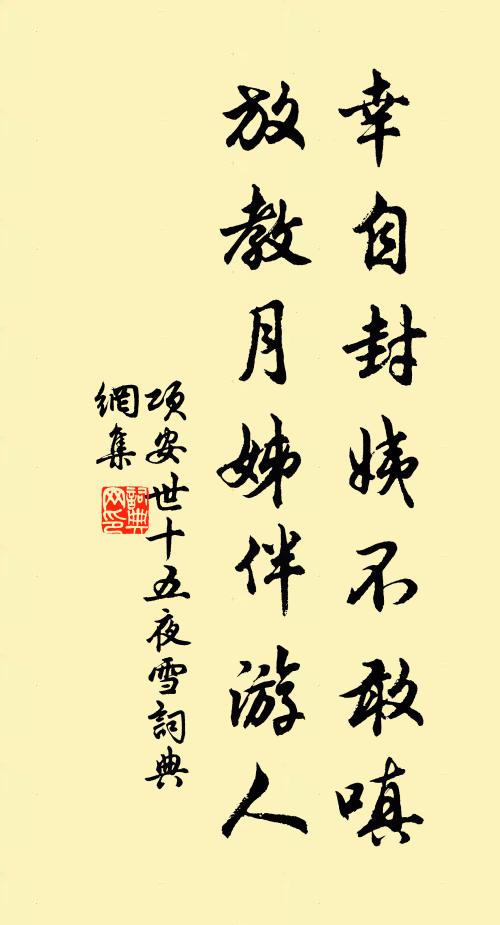 幸自封姨不敢嗔
放教月姊伴游人
項安世十五夜雪詞典
網集
詞典
网印